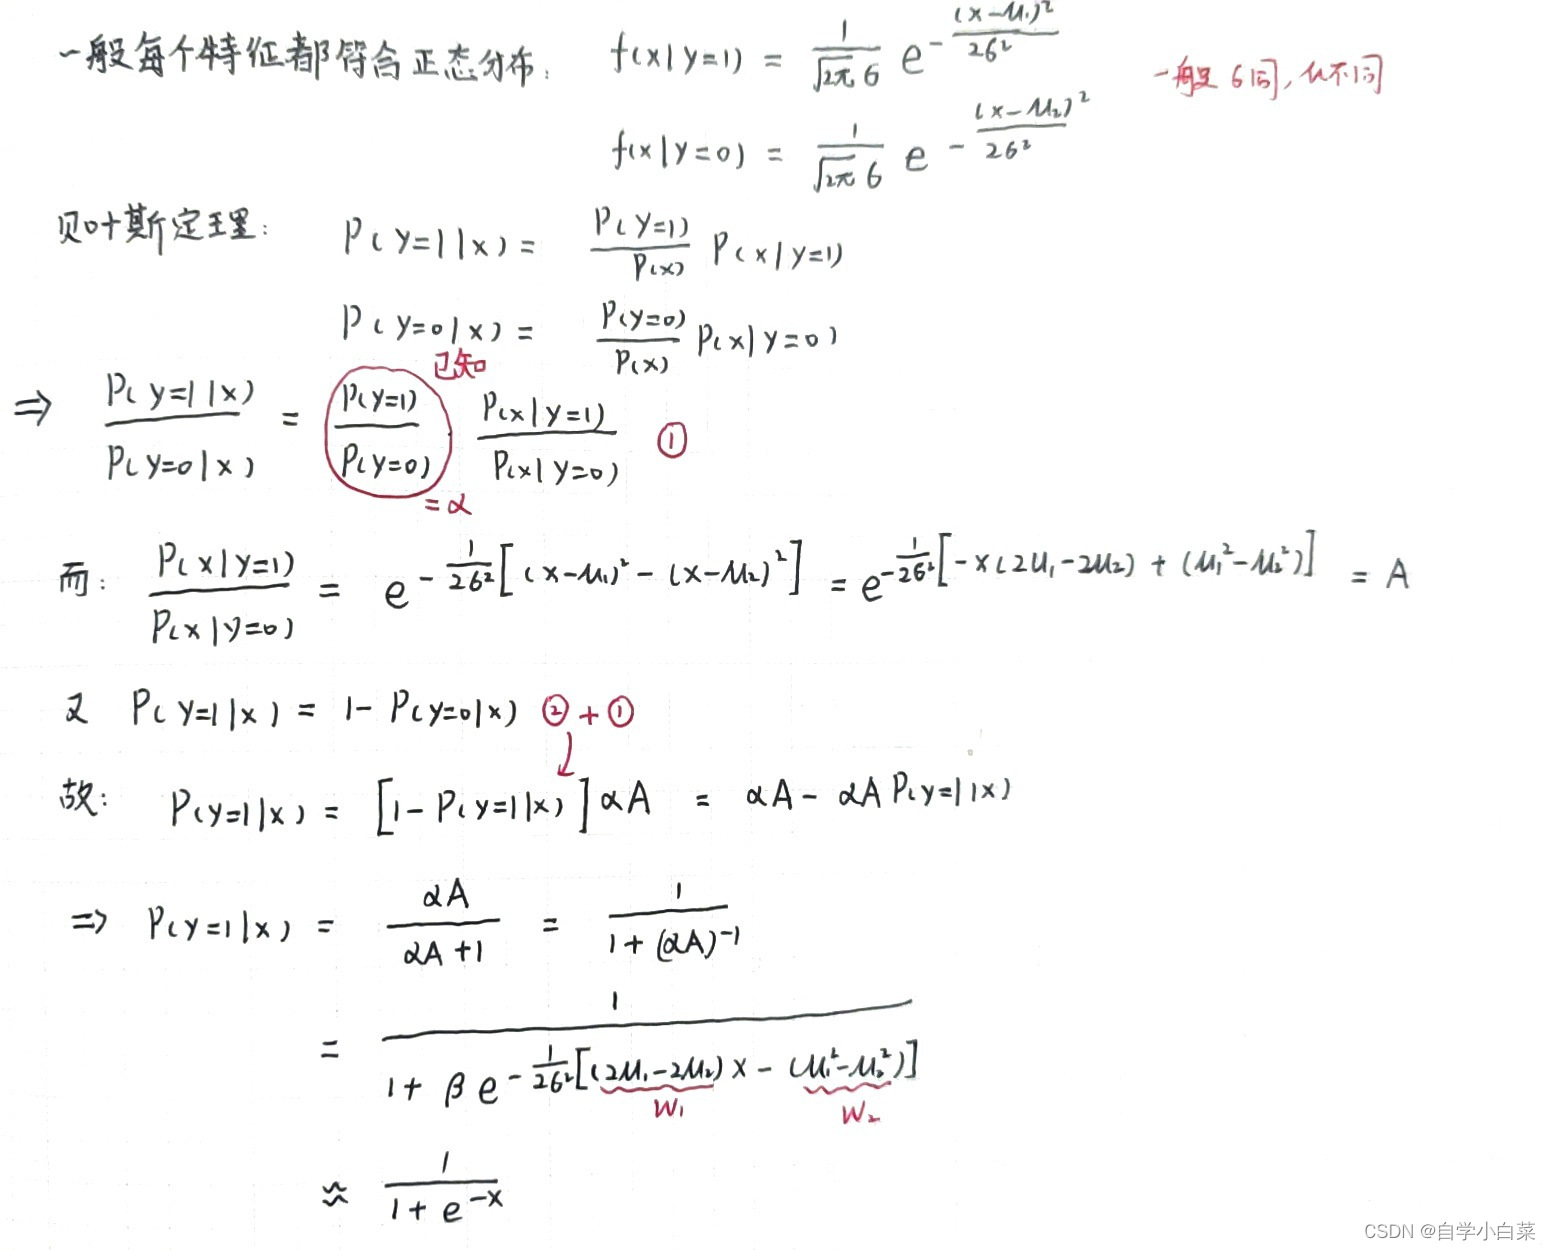 一般每个特征都符合正态分布: f(x|y=1) = \frac{1}{\sqrt{2π}6} e^{-\frac{(x-μ_1)^2}{26^2}}
一般是6同,μ不同
f(x|y=0) = \frac{1}{\sqrt{2π}6} e^{-\frac{(x-μ_2)^2}{26^2}}
贝叶斯定理: P(y=1|x) = \frac{P(y=1)}{P(x)} P(x|y=1)
P(y=0|x) = \frac{P(y=0)}{P(x)} P(x|y=0)
已知
⇒ \frac{P(y=1|x)}{P(y=0|x)} = \frac{P(y=1)}{P(y=0)} \frac{P(x|y=1)}{P(x|y=0)} ①
=α
而: \frac{P(x|y=1)}{P(x|y=0)} = e^{-\frac{1}{26^2}[(x-μ_1)^2-(x-μ_2)^2]} = e^{-\frac{1}{26^2}[-x(2μ_1-2μ_2)+(μ_1^2-μ_2^2)]} = A
又 P(y=1|x) = 1-P(y=0|x) ②+①
↓
故: P(y=1|x) = [1-P(y=1|x)]αA = αA-αAP(y=1|x)
⇒ P(y=1|x) = \frac{αA}{αA+1} = \frac{1}{1+(αA)^{-1}}
= \frac{1}{1+βe^{-\frac{1}{26^2}[(2μ_1-2μ_2)x-(μ_1^2-μ_2^2)]}}
W_1 W_2
≈ \frac{1}{1+e^{-x}}
CSDN @自学小白菜